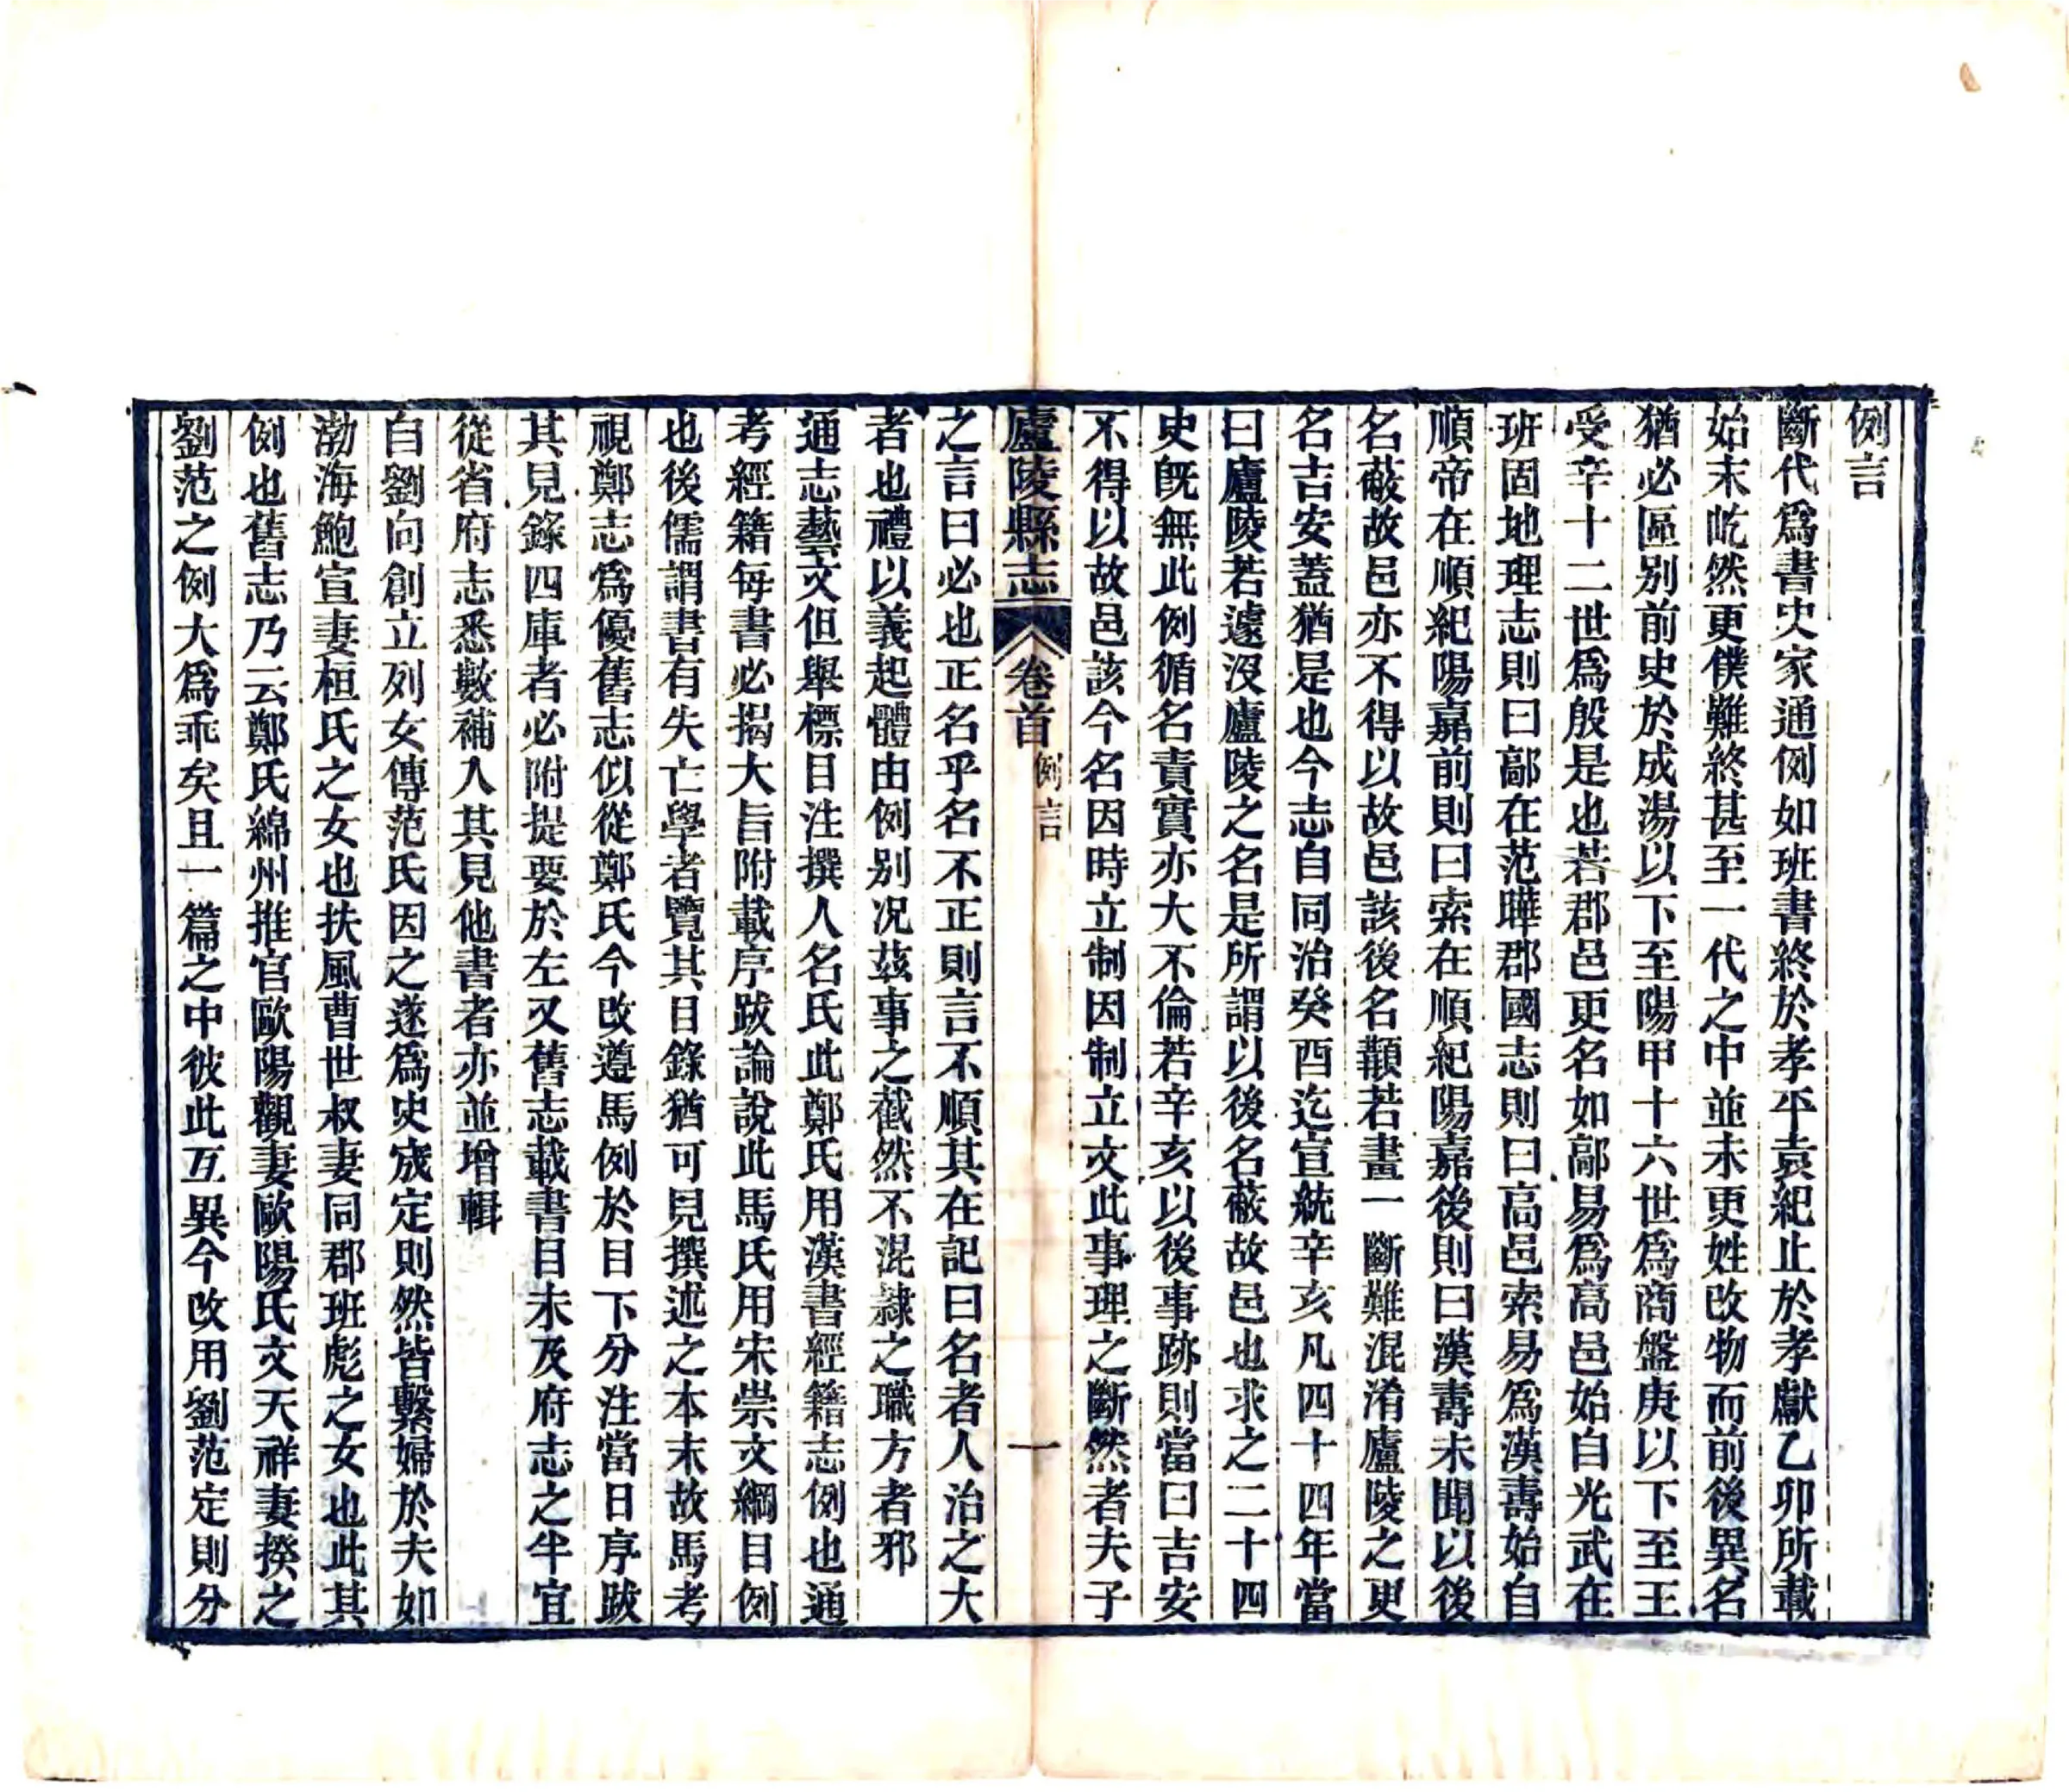 例言
斷代爲書史家通例如班書終於孝平袁紀止於孝獻乙卯所載
始末屹然更僕難終甚至一代之中並未更姓改物而前後異名
猶必區別前史於成湯以下至陽甲十六世爲商盤庚以下至王
受辛十二世爲殷是也若郡邑更名如鄗易爲高邑始自光武在
班固地理志則曰鄗在范曄郡國志則曰高邑索易爲漢壽始自
順帝在順紀陽嘉前則曰索在順紀陽嘉後則曰漢壽未聞以後
名蔽故邑亦不得以故邑該後名顜若畫一斷難混淆廬陵之更
名吉安蓋猶是也今志自同治癸酉迄宣統辛亥凡四十四年當
曰廬陵若遽沒廬陵之名是所謂以後名蔽故邑也求之二十四
史旣無此例循名責實亦大不倫若辛亥以後事跡則當曰吉安
不得以故邑該今名因時立制因制立文此事理之斷然者夫子
廬陵縣志 卷首 例言 一
之言曰必也正名乎名不正則言不順其在記曰名者人治之大
者也禮以義起體由例別况茲事之截然不混隷之職方者邪
通志藝文但舉標目注撰人名氏此鄭氏用漢書經籍志例也通
考經籍每書必揭大旨附載序跋論說此馬氏用宋崇文綱目例
也後儒謂書有失亡學者覽其目錄猶可見撰述之本末故馬考
視鄭志爲優舊志似從鄭氏今改遵馬例於目下分注當日序跋
其見錄四庫者必附提要於左又舊志載書目未及府志之半宜
從省府志悉數補入其見他書者亦並增輯
自劉向創立列女傳范氏因之遂爲史宬定則然皆繫婦於夫如
渤海鮑宣妻桓氏之女也扶風曹世叔妻同郡班彪之女也此其
例也舊志乃云鄭氏綿州推官歐陽觀妻歐陽氏文天祥妻揆之
劉范之例大爲乖矣且一篇之中彼此互異今改用劉范定則分